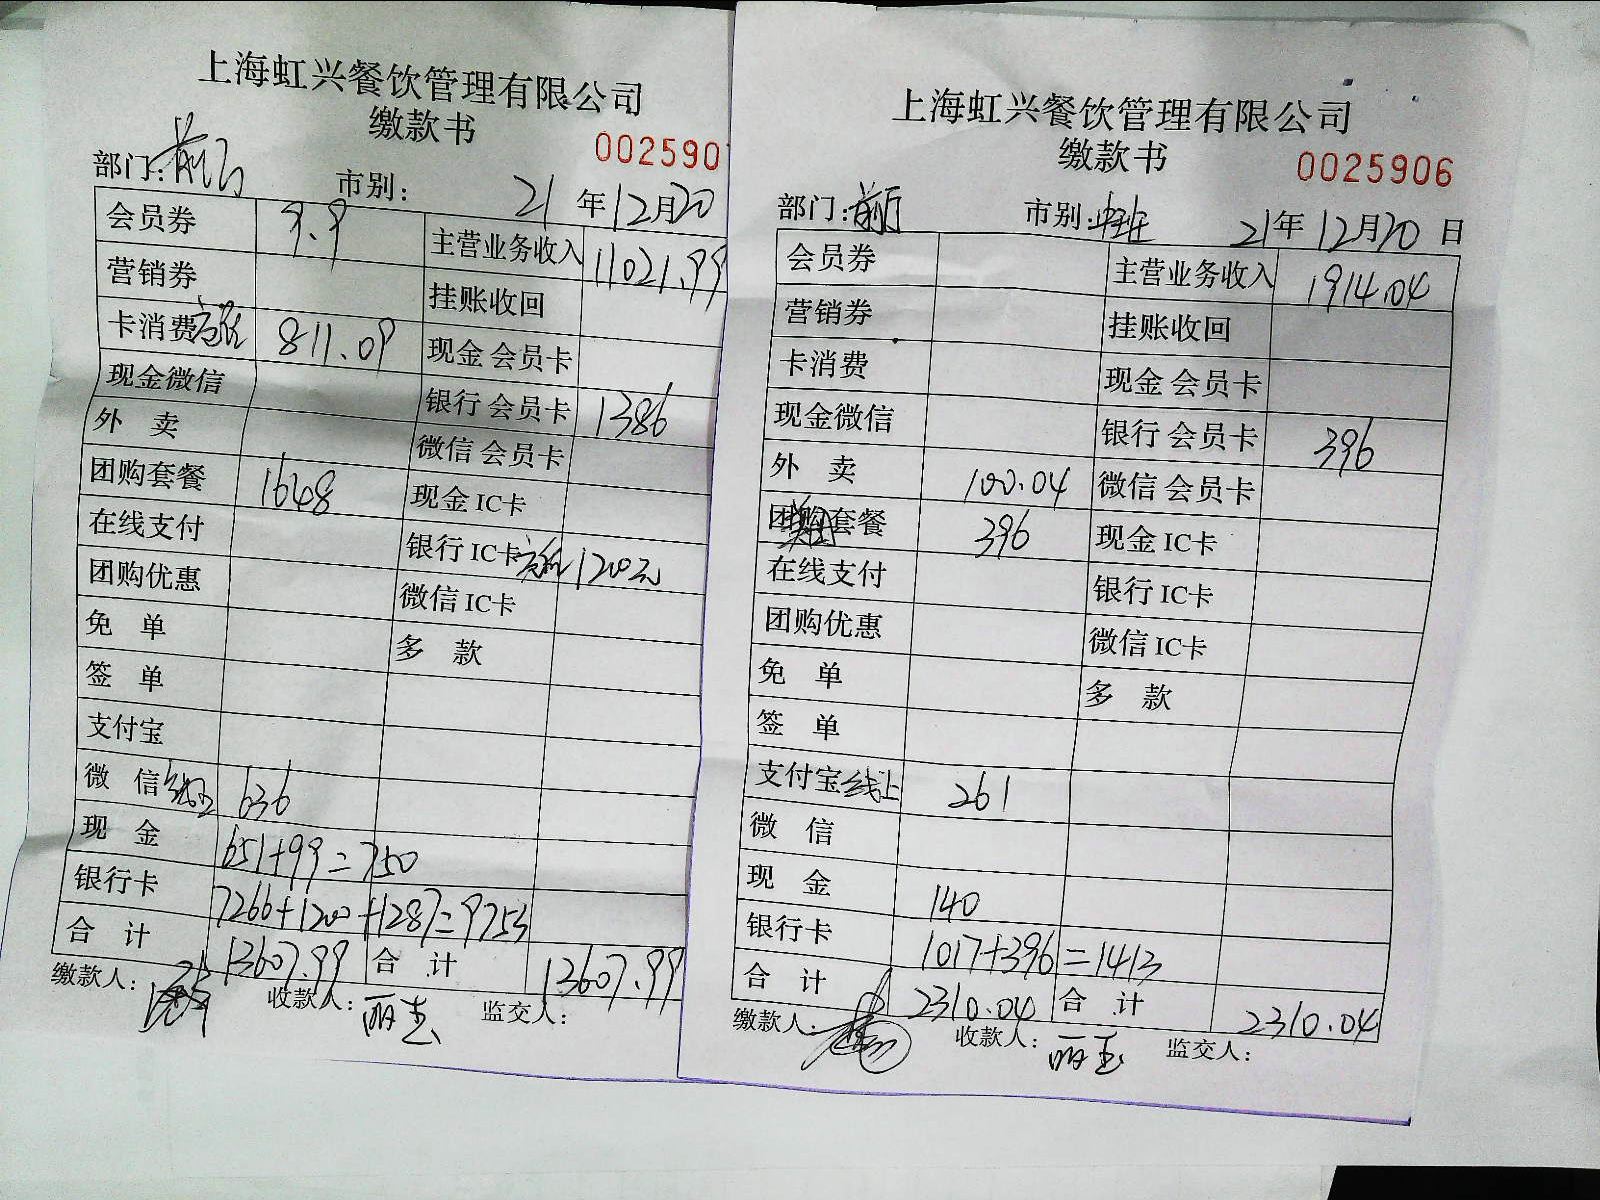 上海虹兴餐饮管理有限公司
缴款书
002590
部门: 前台 市别: 21年12月20
会员券 9.9 主营业务收入 11021.99
营销券 挂账收回
卡消费 811.09 现金 会员卡
现金微信 银行 会员卡 1386
外 卖 微信 会员卡
团购套餐 1648 现金 IC卡
在线支付 银行 IC卡 1200元
团购优惠 微信 IC卡
免 单 多 款
签 单
支付宝
微 信 线上 636
现 金 651+99=750
银行卡 7266+1200+1287=9753
合 计 13607.99 合 计 13607.99
缴款人: 收款人: 丽玉 监交人:
上海虹兴餐饮管理有限公司
缴款书
0025906
部门: 前厅 市别: 中班 21年12月20日
会员券 主营业务收入 1914.04
营销券 挂账收回
卡消费 现金 会员卡
现金微信 银行 会员卡 396
外 卖 100.04 微信 会员卡
团购套餐 396 现金 IC卡
在线支付 银行 IC卡
团购优惠 微信 IC卡
免 单 多 款
签 单
支付宝 线上 261
微 信
现 金 140
银行卡 1017+396=1413
合 计 2310.04 合 计 2310.04
缴款人: 收款人: 丽玉 监交人: